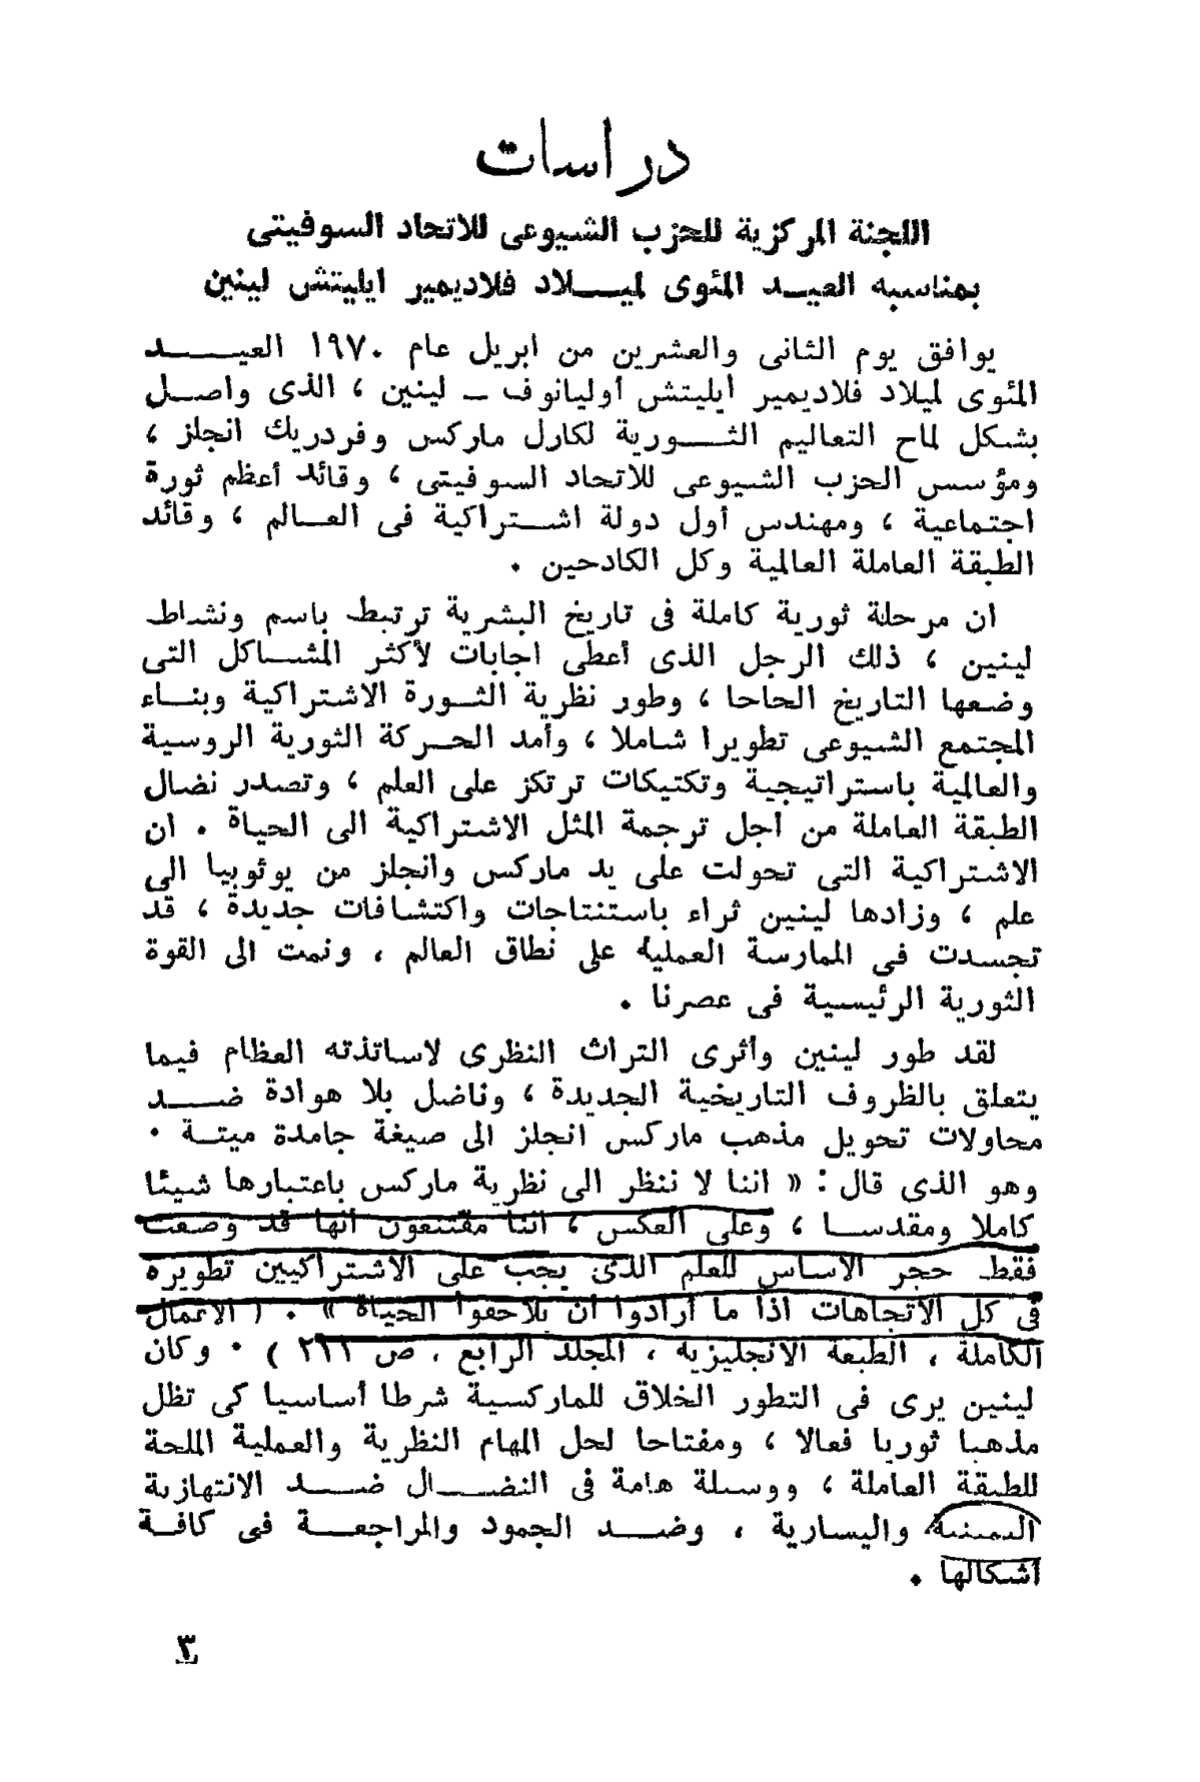 دراسات
اللجنة المركزية للحزب الشيوعى للاتحاد السوفيتى
بمناسبه العيد المئوى لميلاد فلاديمير ايليتش لينين
يوافق يوم الثانى والعشرين من ابريل عام ١٩٧٠ العيد
المئوى لميلاد فلاديمير ايليتش أوليانوف — لينين ، الذى واصل
بشكل لماح التعاليم الثورية لكارل ماركس وفردريك انجلز ،
ومؤسس الحزب الشيوعى للاتحاد السوفيتى ، وقائد أعظم ثورة
اجتماعية ، ومهندس أول دولة اشتراكية فى العالم ، وقائد
الطبقة العاملة العالمية وكل الكادحين .
ان مرحلة ثورية كاملة فى تاريخ البشرية ترتبط باسم ونشاط
لينين ، ذلك الرجل الذى أعطى اجابات لأكثر المشاكل التى
وضعها التاريخ الحاحا ، وطور نظرية الثورة الاشتراكية وبناء
المجتمع الشيوعى تطويرا شاملا ، وأمد الحركة الثورية الروسية
والعالمية باستراتيجية وتكتيكات ترتكز على العلم ، وتصدر نضال
الطبقة العاملة من أجل ترجمة المثل الاشتراكية الى الحياة . ان
الاشتراكية التى تحولت على يد ماركس وانجلز من يوثوبيا الى
علم ، وزادها لينين ثراء باستنتاجات واكتشافات جديدة ، قد
تجسدت فى الممارسة العملية على نطاق العالم ، ونمت الى القوة
الثورية الرئيسية فى عصرنا .
لقد طور لينين وأثرى التراث النظرى لاساتذته العظام فيما
يتعلق بالظروف التاريخية الجديدة ، وناضل بلا هوادة ضد
محاولات تحويل مذهب ماركس انجلز الى صيغة جامدة ميتة .
وهو الذى قال : « اننا لا ننظر الى نظرية ماركس باعتبارها شيئا
كاملا ومقدسا ، وعلى العكس ، اننا مقتنعون أنها قد وضعت
فقط حجر الاساس للعلم الذى يجب على الاشتراكيين تطويره
فى كل الاتجاهات اذا ما أرادوا أن يلاحقوا الحياة » . ( الاعمال
الكاملة ، الطبعة الانجليزية ، المجلد الرابع ، ص ٢١١ ) . وكان
لينين يرى فى التطور الخلاق للماركسية شرطا أساسيا كى تظل
مذهبا ثوريا فعالا ، ومفتاحا لحل المهام النظرية والعملية الملحة
للطبقة العاملة ، ووسلة هامة فى النضال ضد الانتهازية
اليمينية واليسارية ، وضد الجمود والمراجعة فى كافة
أشكالها .
٣